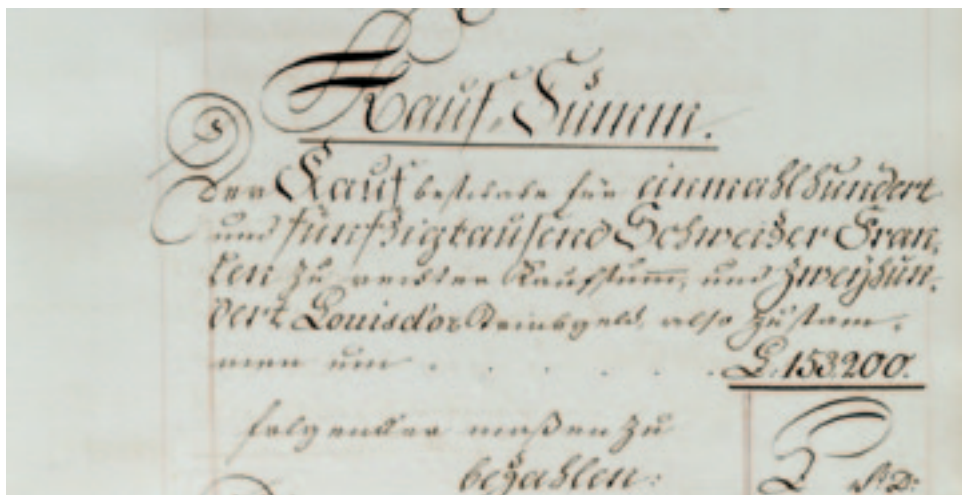 Kauf-Summ.
Der Kauf beschahe für einmahlhundert
und fünfzigtausend Schweizer Fran-
ken zu rechter Kaufsum̄, und zweyhun-
dert Louisd'or Trinkgeld, also zusam-
men um . . . . . . L. 153.200.
folgender maßen zu
bezahlen:
L